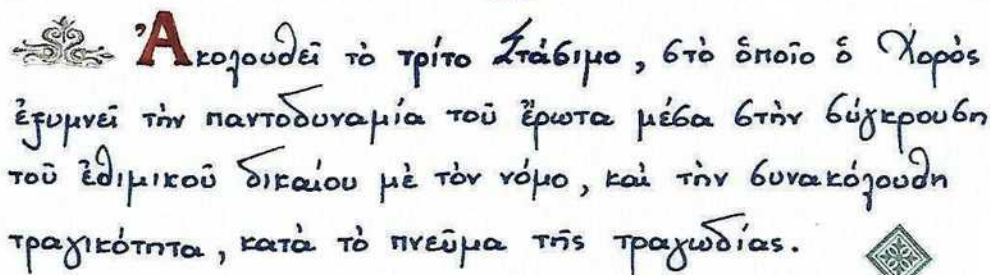 Ἀκολουθεῖ τὸ τρίτο Στάσιμο, στὸ ὁποῖο ὁ Χορὸς
ἐξυμνεῖ τὴν παντοδυναμία τοῦ ἔρωτα μέσα στὴν σύγκρουση
τοῦ ἐθιμικοῦ δικαίου μὲ τὸν νόμο, καὶ τὴν συνακόλουθη
τραγικότητα, κατὰ τὸ πνεῦμα τῆς τραγωδίας.